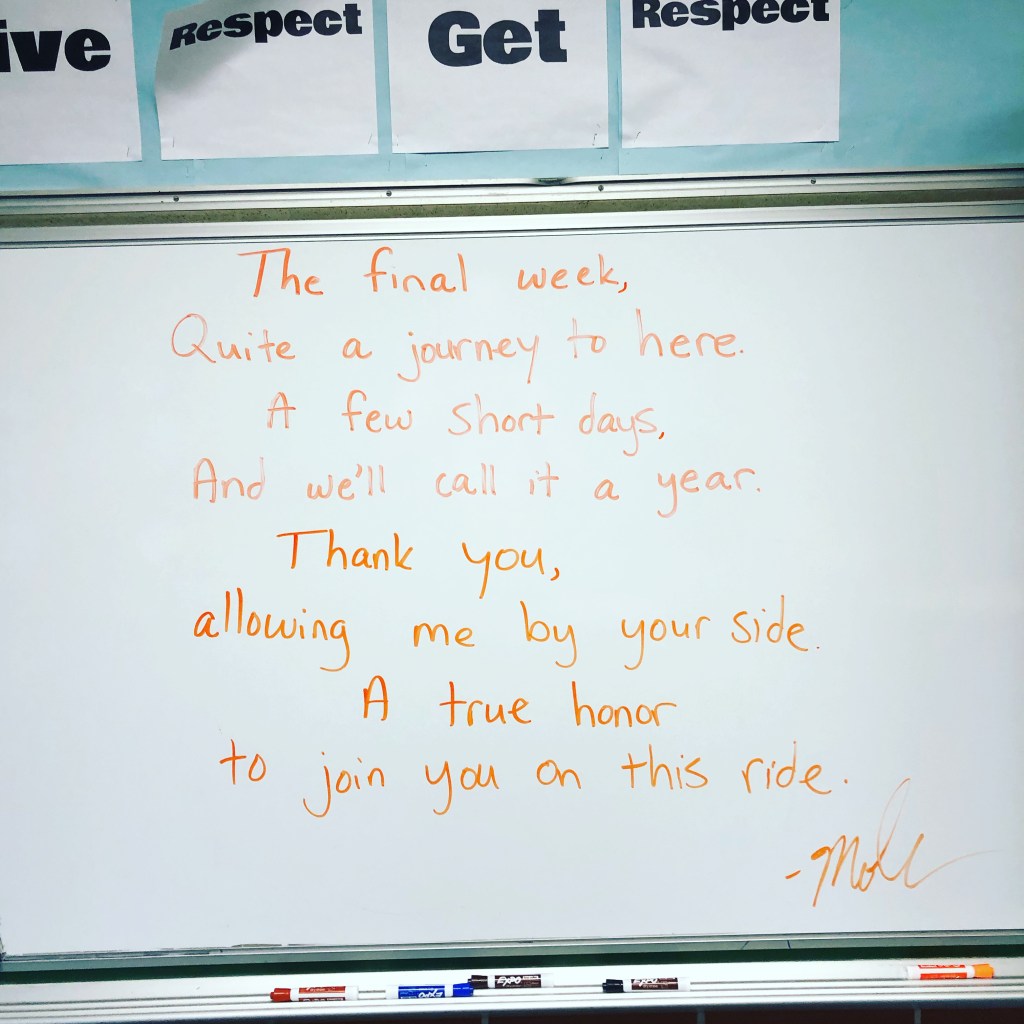 ive Respect Get Respect
The final week,
Quite a journey to here.
A few short days,
And we'll call it a year.
Thank you,
allowing me by your side.
A true honor
to join you on this ride.
EXPO EXPO EXPO